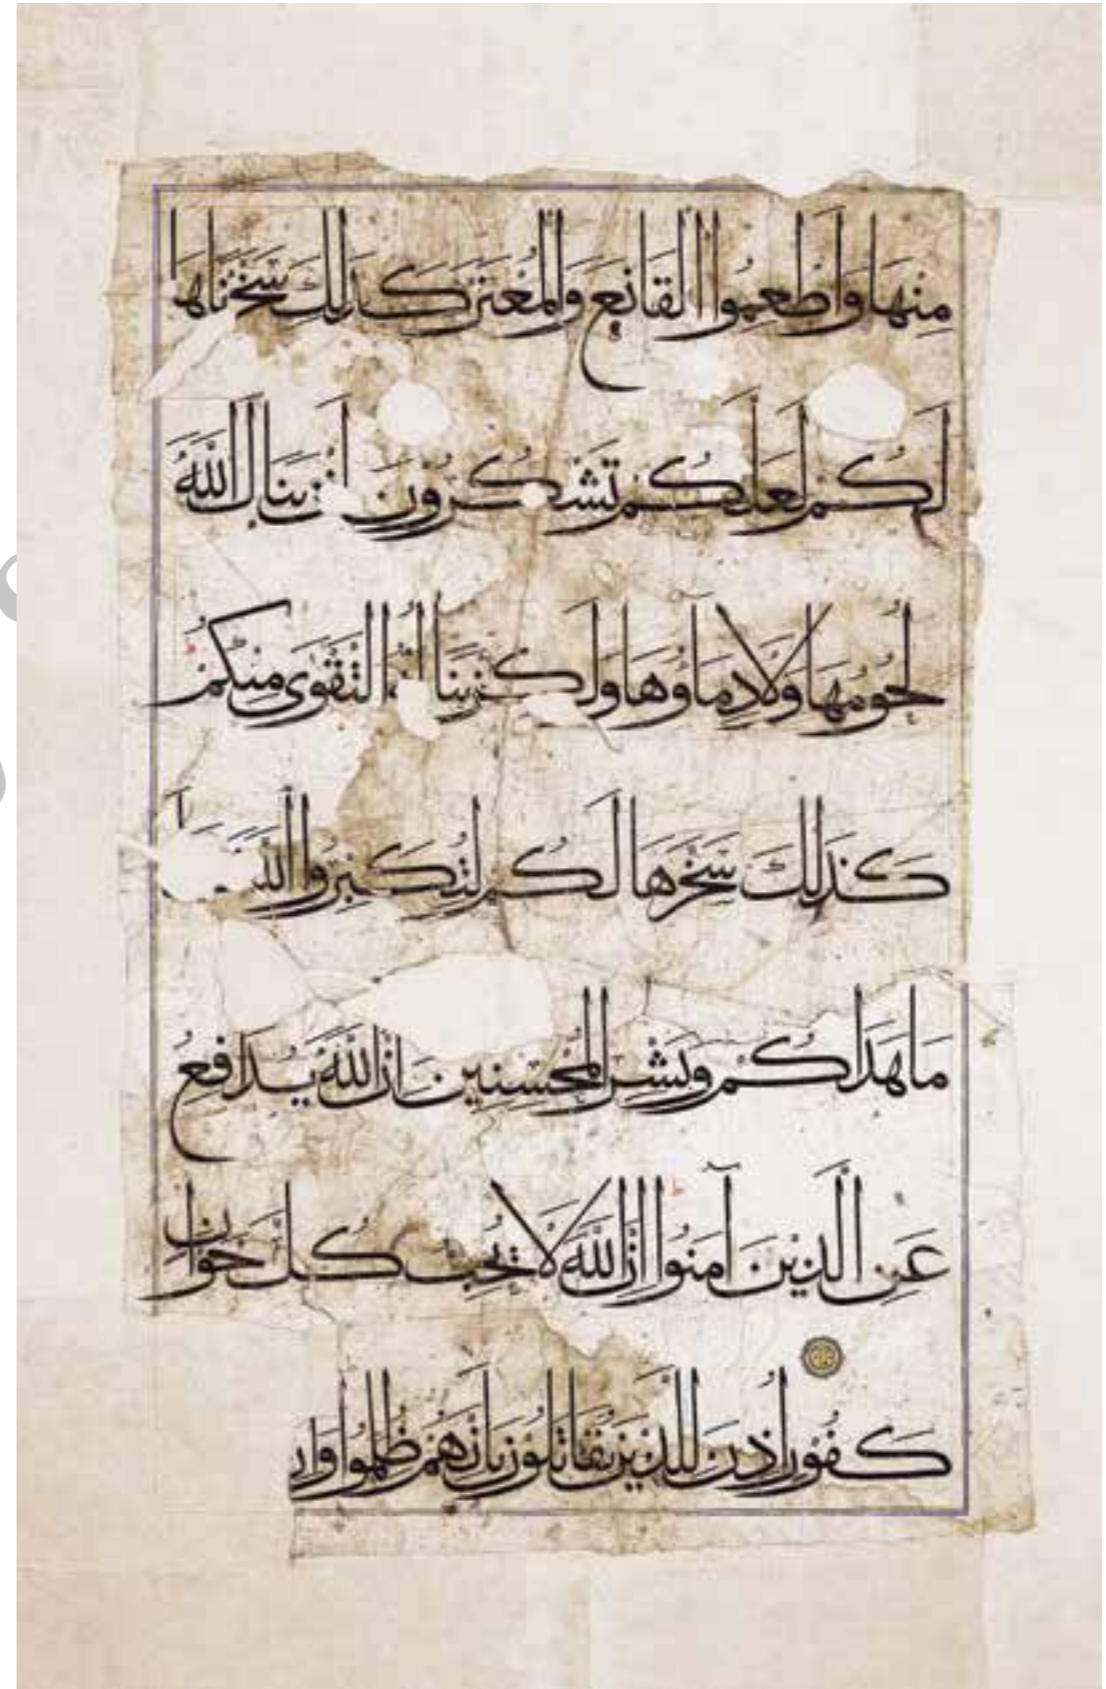 مِنْهَا وَاَطْعِمُوا الْقَانِعَ وَالْمُعْتَرَّ كَذَلِكَ سَخَّرْنَاهَا
لَكُمْ لَعَلَّكُمْ تَشْكُرُونَ لَنْ يَنَالَ اللَّهَ
لُحُومُهَا وَلَا دِمَآؤُهَا وَلَكِنْ يَنَالُهُ التَّقْوَى مِنْكُمْ
كَذَلِكَ سَخَّرَهَا لَكُمْ لِتُكَبِّرُوا اللَّهَ
مَا هَدَاكُمْ وَبَشِّرِ الْمُحْسِنِينَ اِنَّ اللَّهَ يُدَافِعُ
عَنِ الَّذِينَ آمَنُوا اِنَّ اللَّهَ لَا يُحِبُّ كُلَّ خَوَّانٍ
كَفُورٍ اُذِنَ لِلَّذِينَ يُقَاتَلُونَ بِاَنَّهُمْ ظُلِمُوا وَاِ